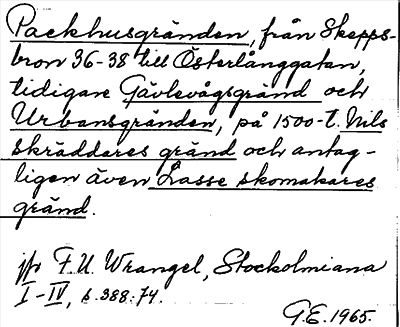 Packhusgränden, från Skepps-
bron 36-38 till Österlånggatan,
tidigare Gävlevågsgränd och
Urbansgränden, på 1500-t. Nils
skräddares gränd och antag-
ligen även Lasse skomakares
gränd.
jfr F.U. Wrangel, Stockolmiana
I-IV, s. 388:74.
G.E. 1965.